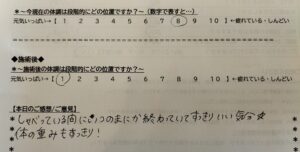 *～今現在の体調は段階的にどの位置ですか？～（数字で表すと…）
元気いっぱい→【 1 2 3 4 5 6 7 8 9 10 】←疲れている・しんどい
◆施術後◆
*～施術後の体調は段階的にどの位置ですか？～
元気いっぱい→【 1 2 3 4 5 6 7 8 9 10 】←疲れている・しんどい
【本日のご感想/ご意見】
しゃべっている間にいつのまにか終わっていてすっきりいい気分☆
体の重みもすっきり！